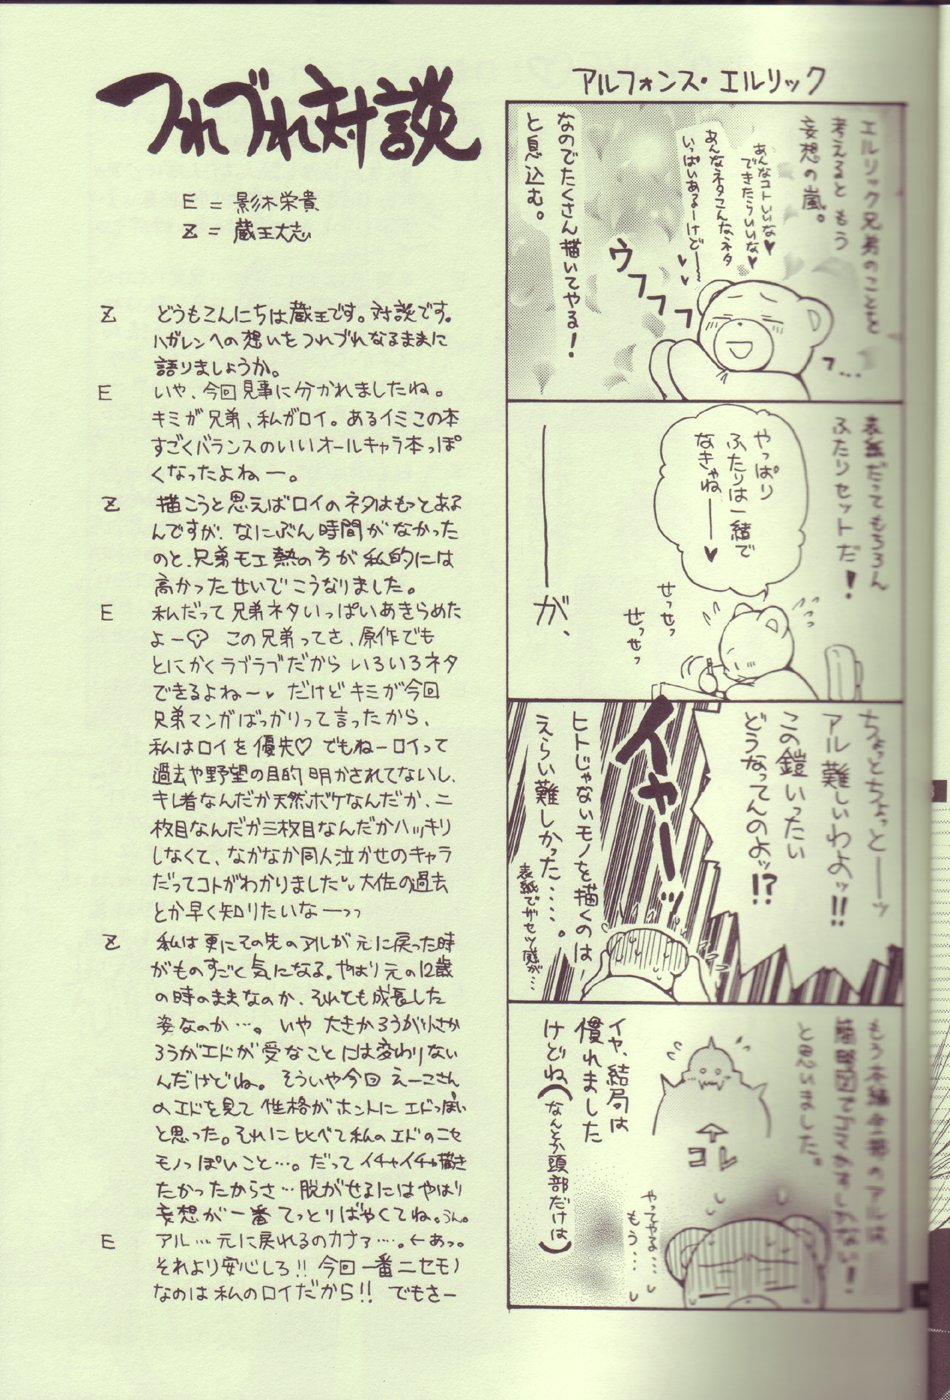 つれづれ対談
E = 影木栄貴
Z = 蔵王大志
Z どうもこんにちは蔵王です。対談です。
ハガレンへの想いをつれづれなるままに
語りましょうか。
E いや、今回見事に分かれましたね。
キミが兄弟、私がロイ。あるイミこの本
すごくバランスのいいオールキャラ本っぽ
くなったよねー。
Z 描こうと思えばロイのネタはもっとある
んですが、なにぶん時間がなかった
のと、兄弟モエ熱の方が私的には
高かったせいでこうなりました。
E 私だって兄弟ネタいっぱいあきらめた
よー この兄弟ってさ、原作でも
とにかくラブラブだからいろいろネタ
できるよねー♥ だけどキミが今回
兄弟マンガばっかりって言ったから、
私はロイを優先♡ でもねーロイって
過去や野望の目的明かされてないし、
キレ者なんだか天然ボケなんだか、二
枚目なんだか三枚目なんだかハッキリ
しなくて、なかなか同人泣かせのキャラ
だってコトがわかりました 大佐の過去
とか早く知りたいなーっっ
Z 私は更にその先のアルが元に戻った時
がものすごく気になる。やはり元の12歳
の時のままなのか、それとも成長した
姿なのか…。いや大きかろうが小さか
ろうがエドが受なことには変わりない
んだけどね。そういや今回えーこさん
のエドを見て性格がホントにエドっぽい
と思った。それに比べて私のエドのニセ
モノっぽいこと…。だってイチャイチャ描き
たかったからさ…脱がせるにはやはり
妄想が一番てっとりばやくてね。うん。
E アル…元に戻れるのカナァ…。←あっ。
それより安心しろ!! 今回一番ニセモノ
なのは私のロイだから!! でもさー
アルフォンス・エルリック
エルリック兄弟のことを
考えるともう
妄想の嵐。
あんなコトいいな♥
できたらいいな♥
あんなネタこんなネタ
いっぱいあるーけどー
なのでたくさん描いてやる!
と息込む。
ウフフフ
フ…
表紙だってもちろん
ふたりセットだ!
やっぱり
ふたりは一緒で
なきゃねー♥
せっせっ
せっせっ
が、
ちょっとちょっとーッ
アル難しいわよッ!!
この鎧いったい
どうなってんのよッ!?
イヤーッ
ヒトじゃないモノを描くのは
えらい難しかった…。
もう本編全部のアルは
簡略図でゴマかすしかない!
と思いました。
コレ
イヤ、結局は
慣れました
けどね(なんとか頭部だけは)
やってやる…
もう…